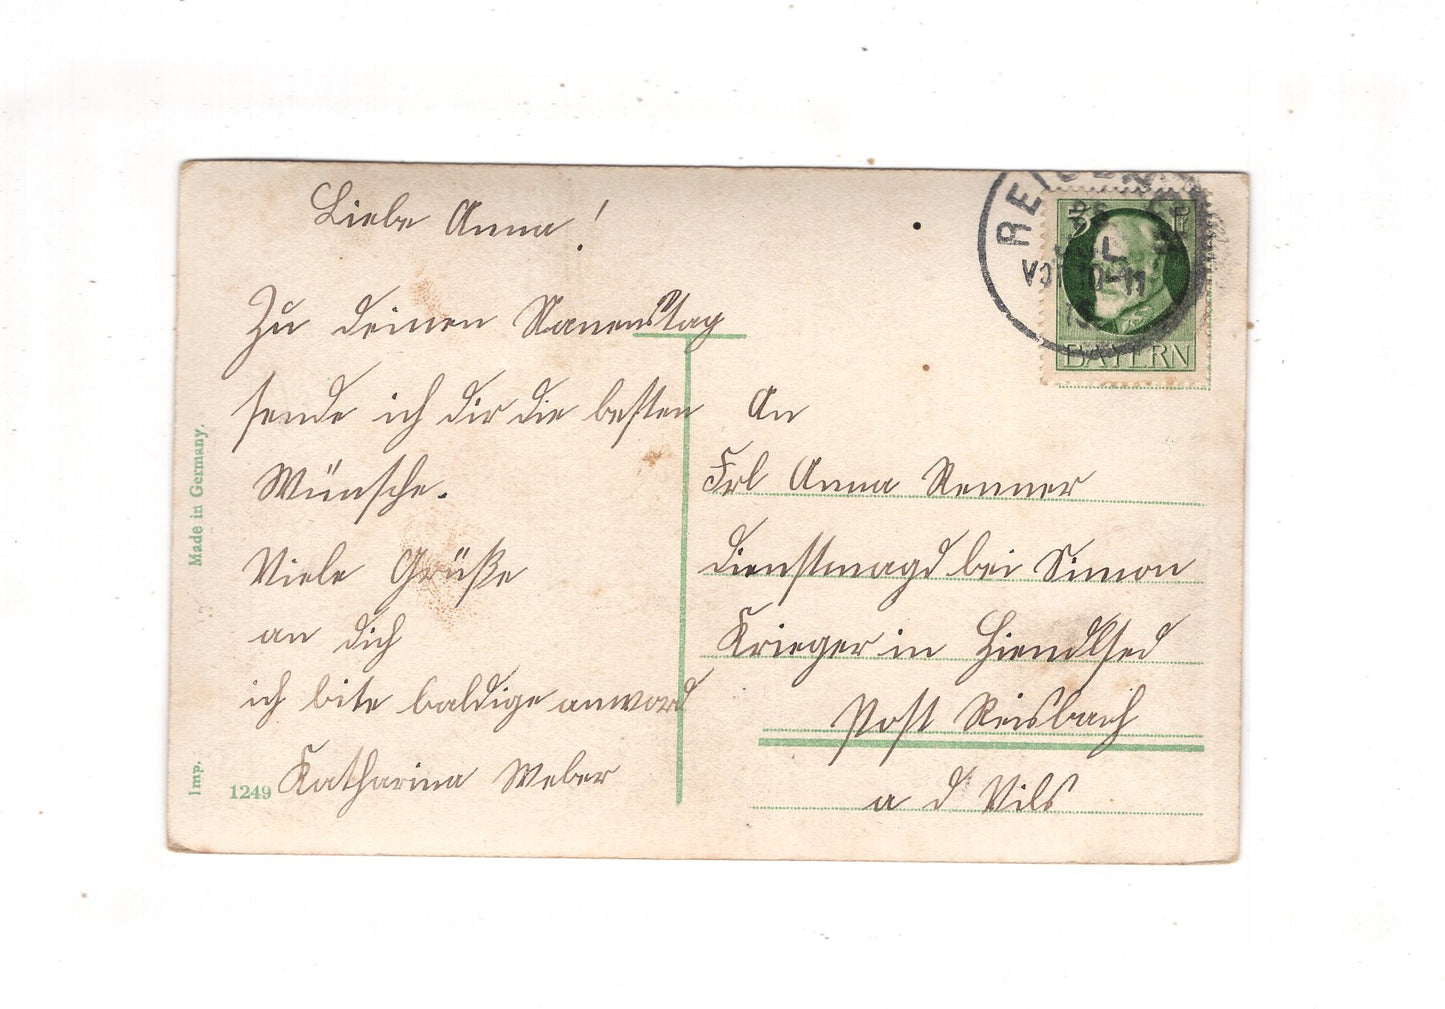 Liebe Anna!
Zu deinen Namenstag
sende ich dir die besten
Wünsche.
Viele Grüße
an dich
ich bite baldige anword
Katharina Weber
An
Frl Anna Renner
Dienstmagd bei Simon
Krieger in
Post Reisbach
a d Vils
Made in Germany.
Imp.
1249
BAYERN
10-11